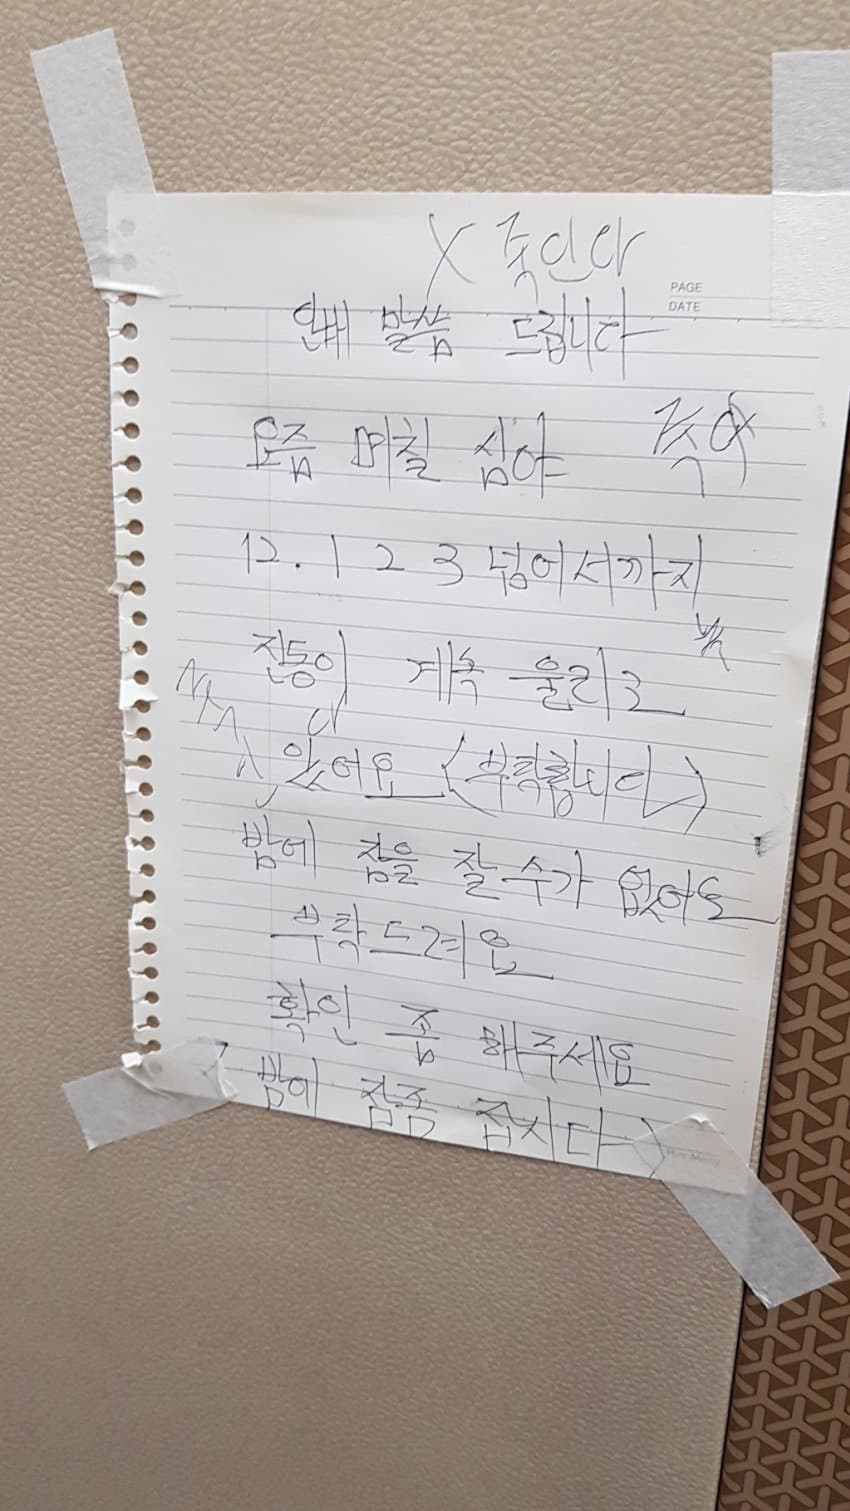 X 죽인다
PAGE
DATE
안내 말씀 드립니다
요즘 며칠 심야
12. 1 2 3 넘어서까지
진동이 계속 울리고
있어요 (부탁합니다)
밤에 잠을 잘 수가 없어요
부탁드려요
확인 좀 해주세요
밤에 잠좀 잡시다